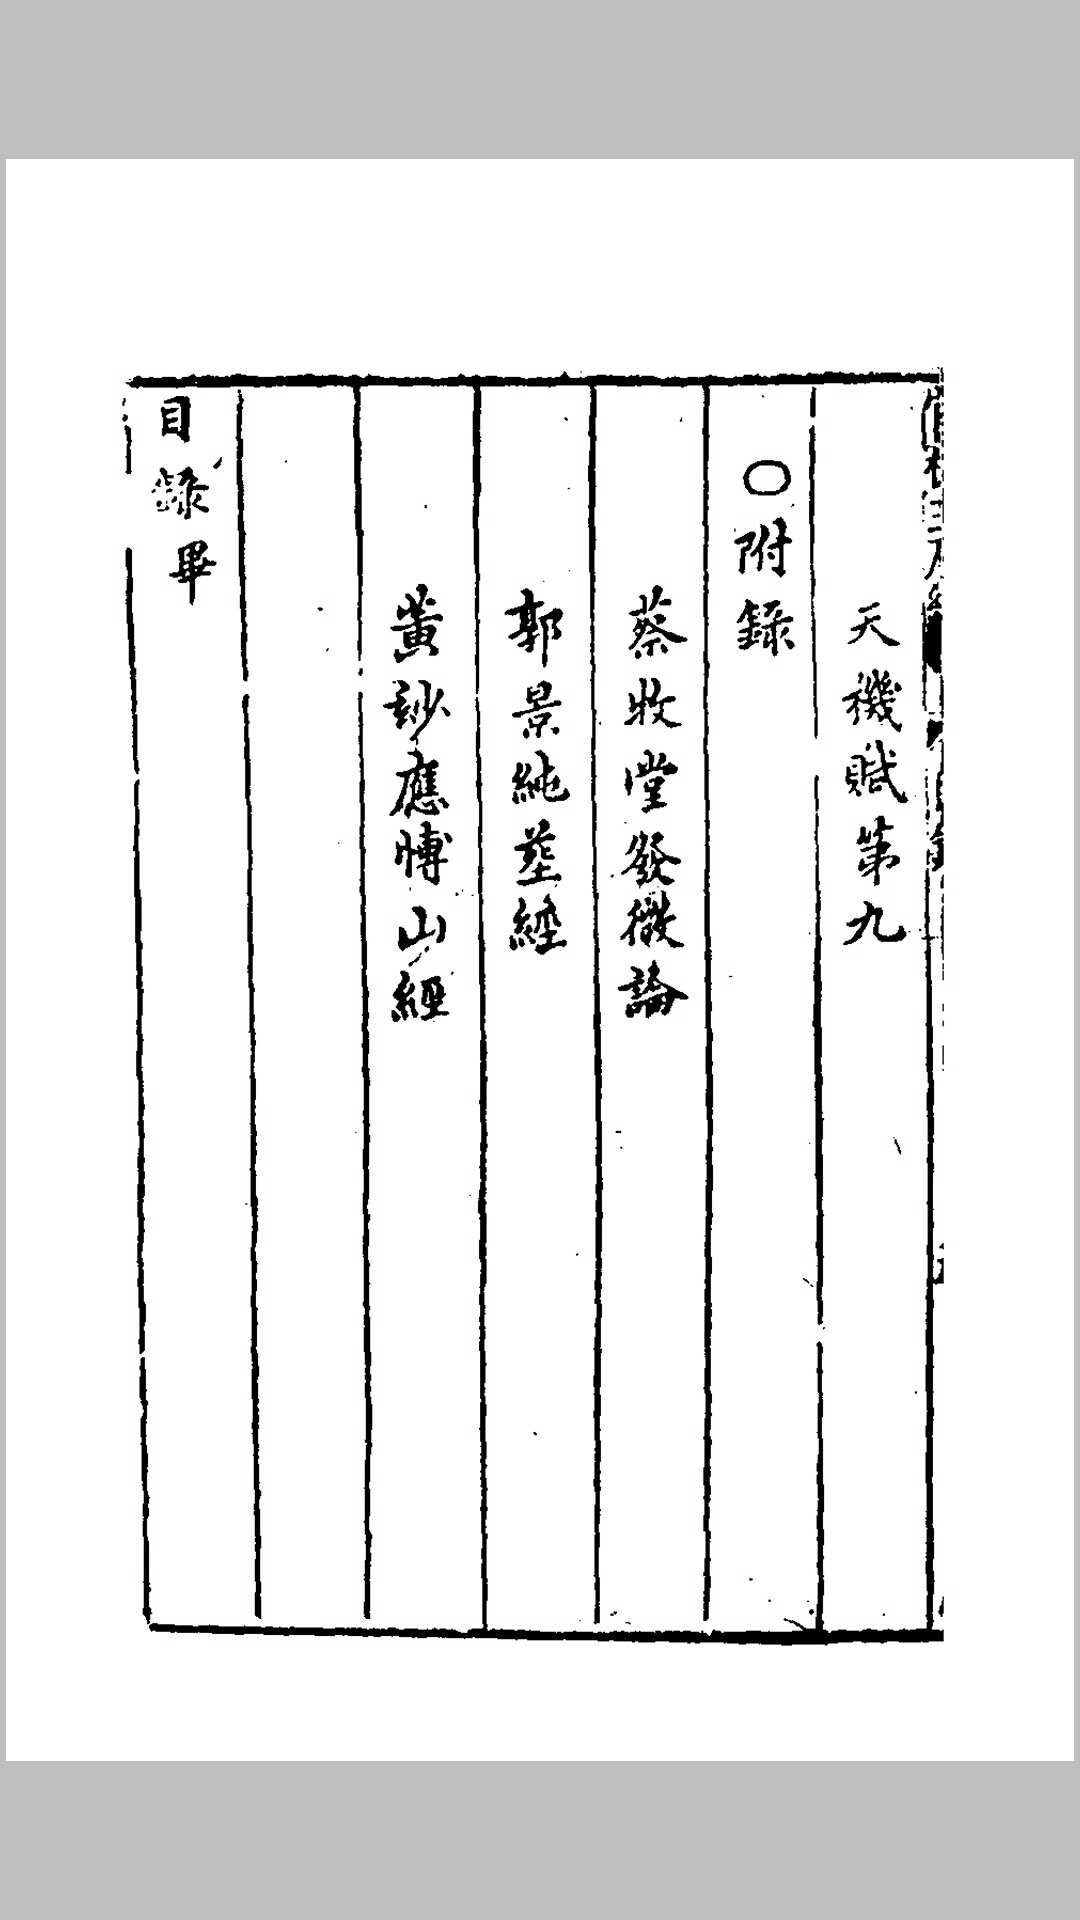 天機賦第九
〇附錄
蔡牧堂發微論
郭景純塟經
黃妙應博山經
目錄畢